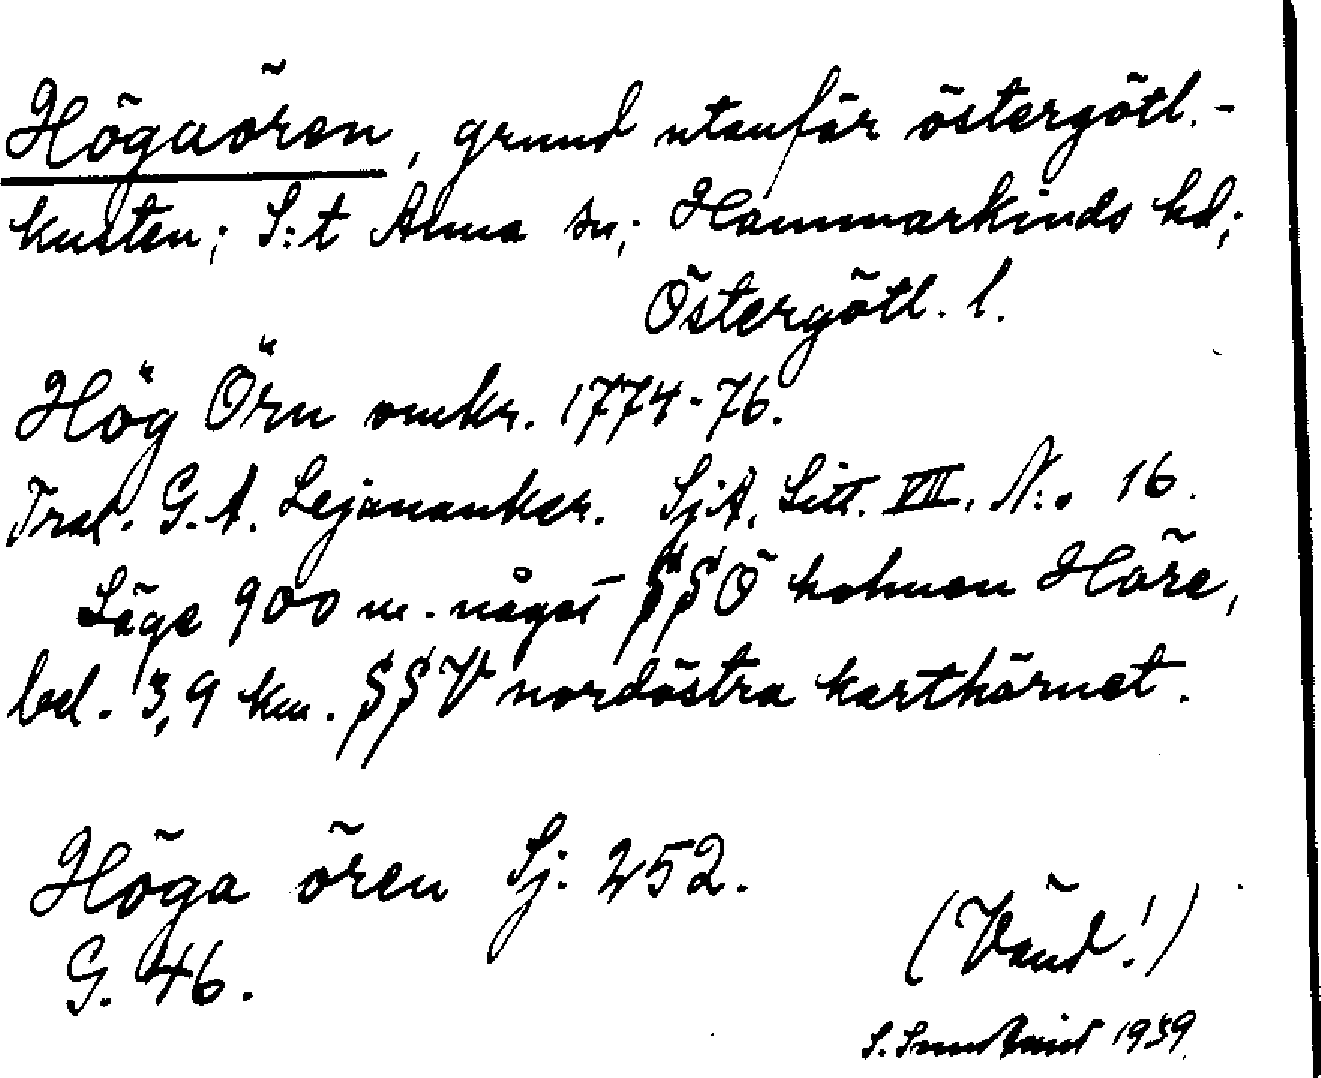 Högaören, grund utanför östergötl.-
kusten; S:t Anna sn; Hammarkinds hd;
Östergötl. l.
Hög Örn omkr. 1774-76.
G. A. Lejonancker. SjA. Litt. VIII. N:o 16.
Läge 900 m. något SSÖ holmen Häre,
bel. 3,9 km. SSV nordöstra karthörnet.
Höga ören Sj. 252.
G. 46.
(Vänd!)
S. 1939.